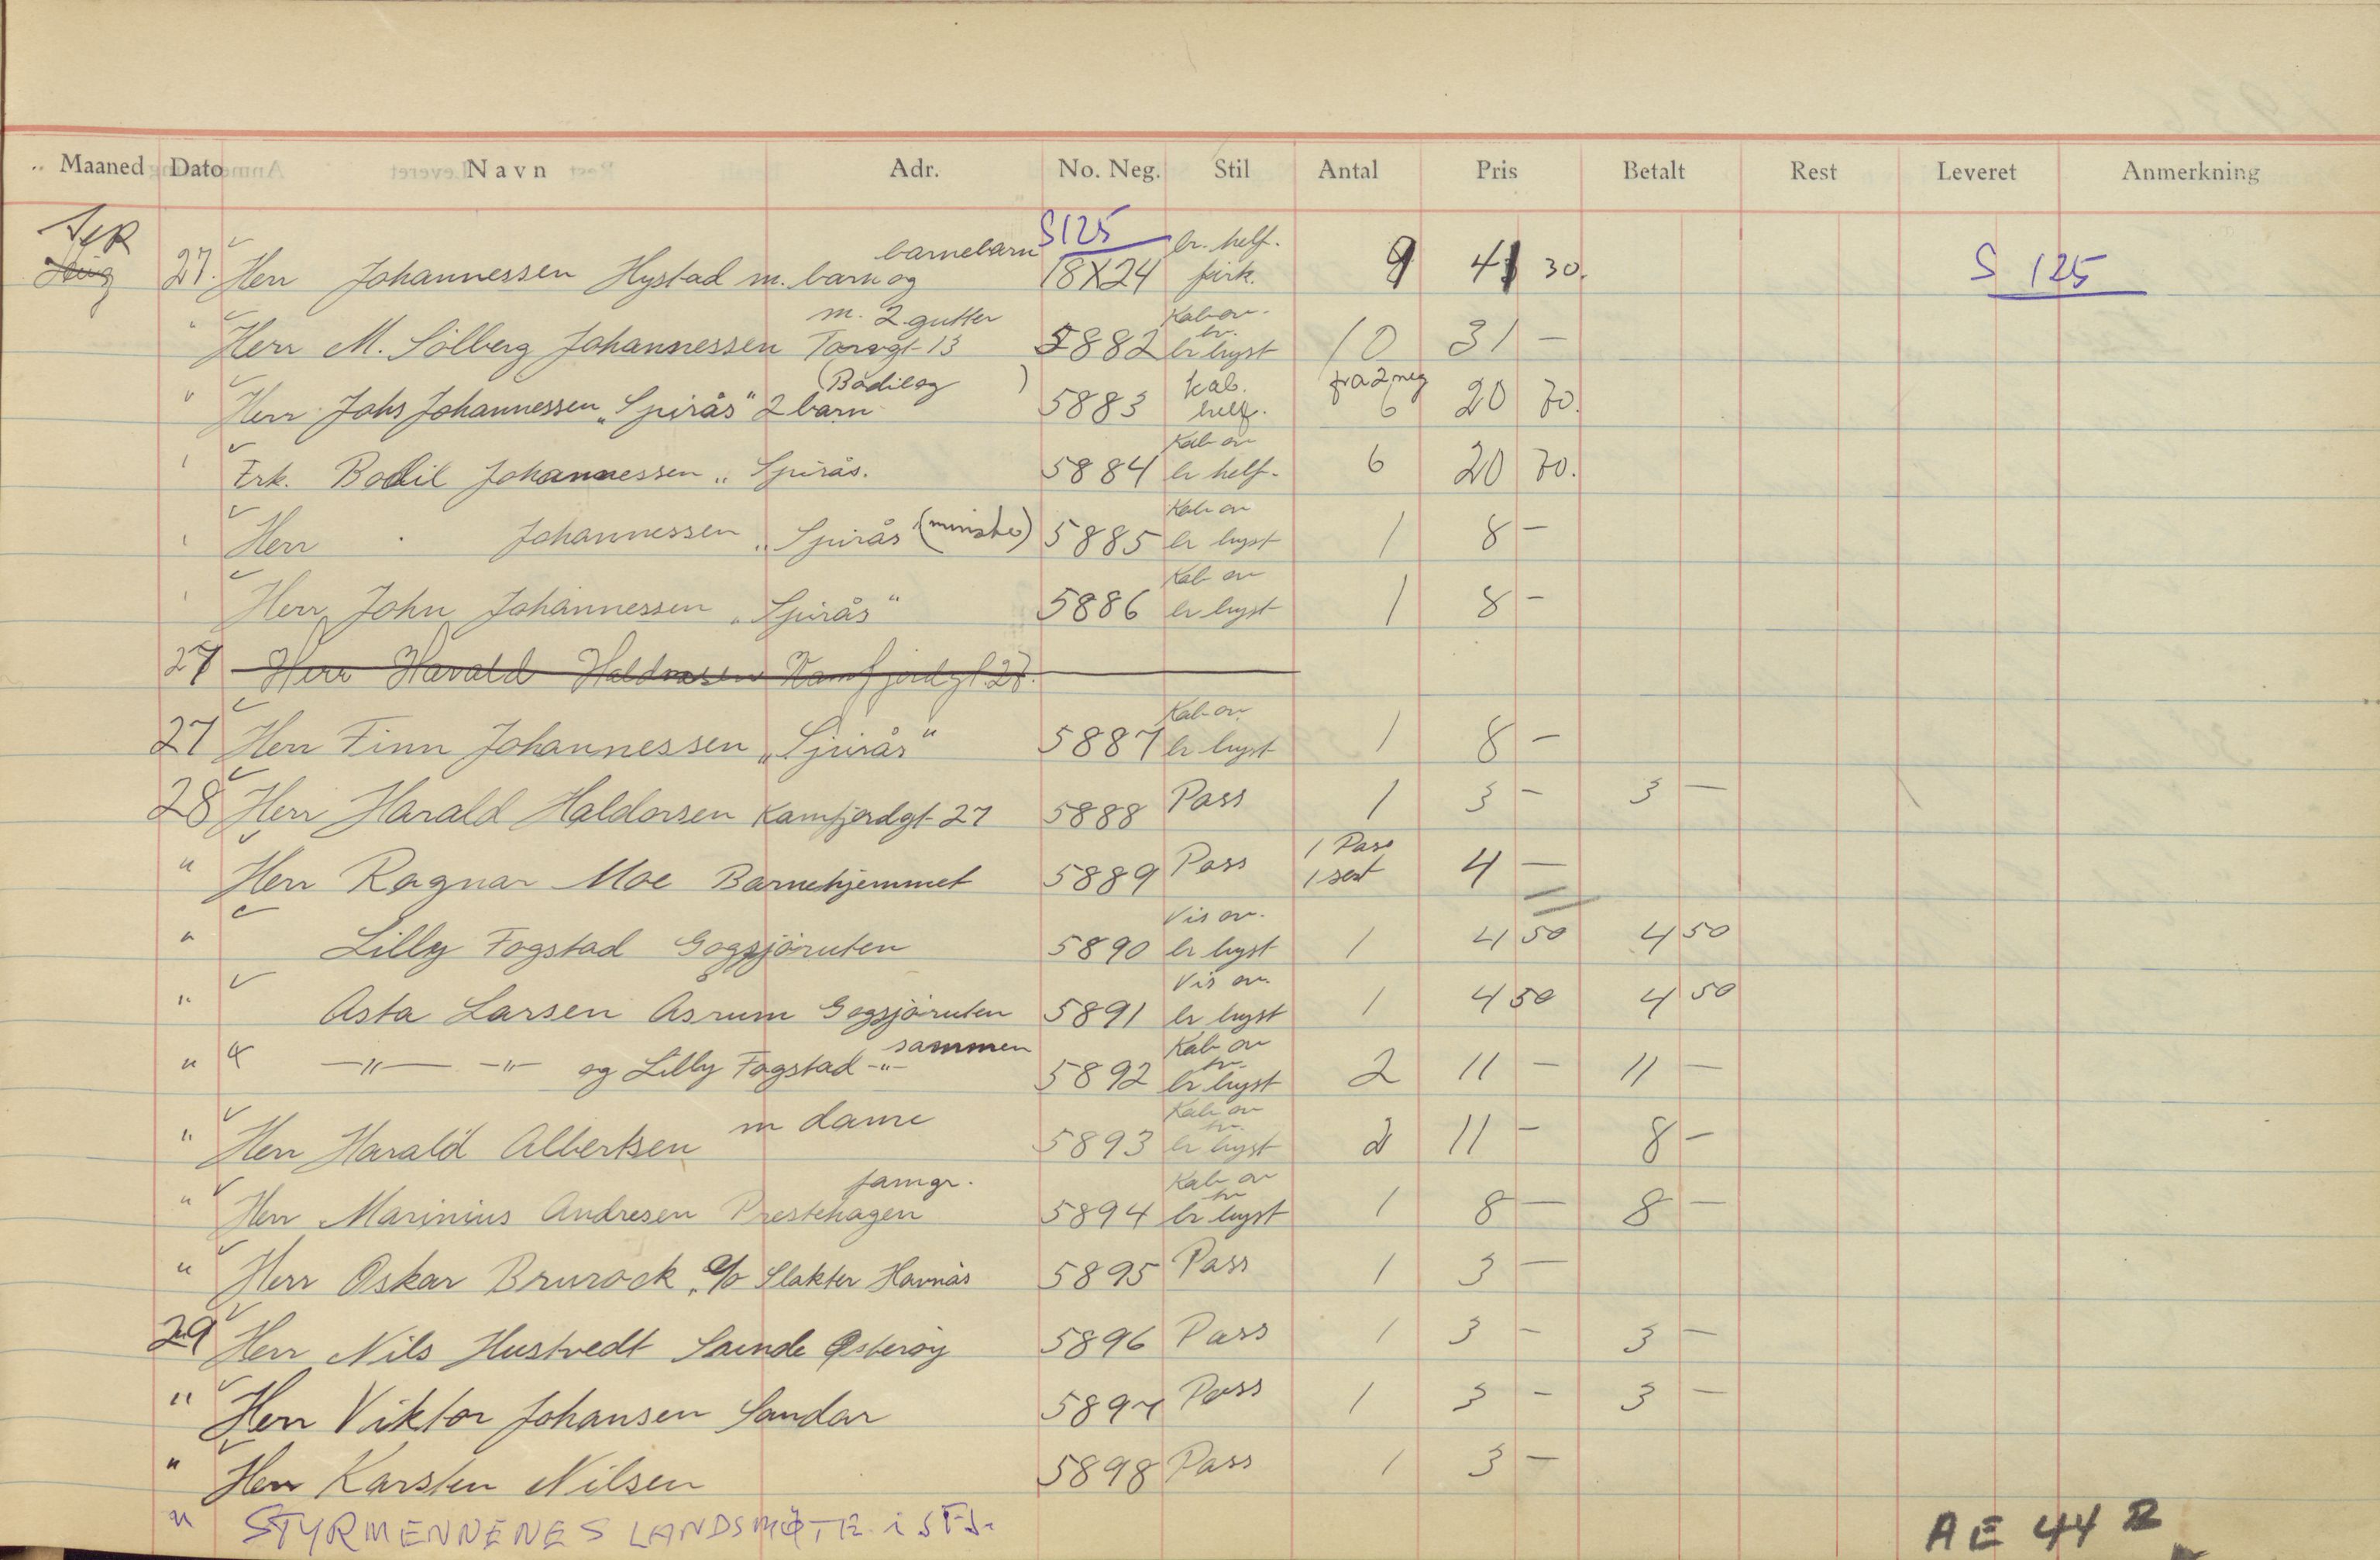 Maaned Dato Navn Adr. No. Neg. Stil Antal Pris Betalt Rest Leveret Anmerkning
barnebarn S125 br. helf.
27. Herr Johannessen Hystad m. barn og 18X24 firk. 9 41 30. S 125
m. 2 gutter Kab on.
" Herr M. Sölberg Johannessen Torvgt 13 5882 br. br byst 10 31 –
(Bodil og ) kab. fra 2 neg
" Herr Johs Johannessen „Spirås" 2 barn 5883 helf. 6 20 70.
Kab on
" Frk. Bodil Johannessen „ Spirås. 5884 br helf. 6 20 70.
Kab on
" Herr Johannessen „ Spirås (minste) 5885 br byst 1 8 –
Kab on
" Herr John Johannessen „Spirås" 5886 br byst 1 8 –
27 Herr Harald Haldorsen Kamfjordgt. 27.
Kab on
27 Herr Finn Johannessen „Spirås" 5887 br byst 1 8 –
28 Herr Harald Haldorsen Kamfjordgt 27 5888 Pass 1 3 – 3 –
" Herr Ragnar Moe Barnehjemmet 5889 Pass 1 Pass 1 sest 4 –
Vis on.
" Lilly Fogstad Gogsjöruten 5890 br byst 1 4 50 4 50
Vis on.
" Asta Larsen Åsrum Gogsjöruten 5891 br byst 1 4 50 4 50
sammen Kab on
" –"– –"– og Lilly Fogstad –"– 5892 br. br byst 2 11 – 11 –
m dame Kab on
" Herr Harald Albertsen 5893 br. br byst 2 11 – 8 –
famgr. Kab on
" Herr Marinius Andresen Prestehagen 5894 br br byst 1 8 – 8 –
" Herr Oskar Brurock. c/o Slakter Havnås 5895 Pass 1 3 –
29 Herr Nils Hustvedt Østeröy 5896 Pass 1 3 – 3 –
" Herr Viktor Johansen Sandar 5897 Pass 1 3 – 3 –
" Herr Karsten Nilsen 5898 Pass 1 3 –
" STYRMENNENES LANDSMØTE i SFJ.
AE 44 R